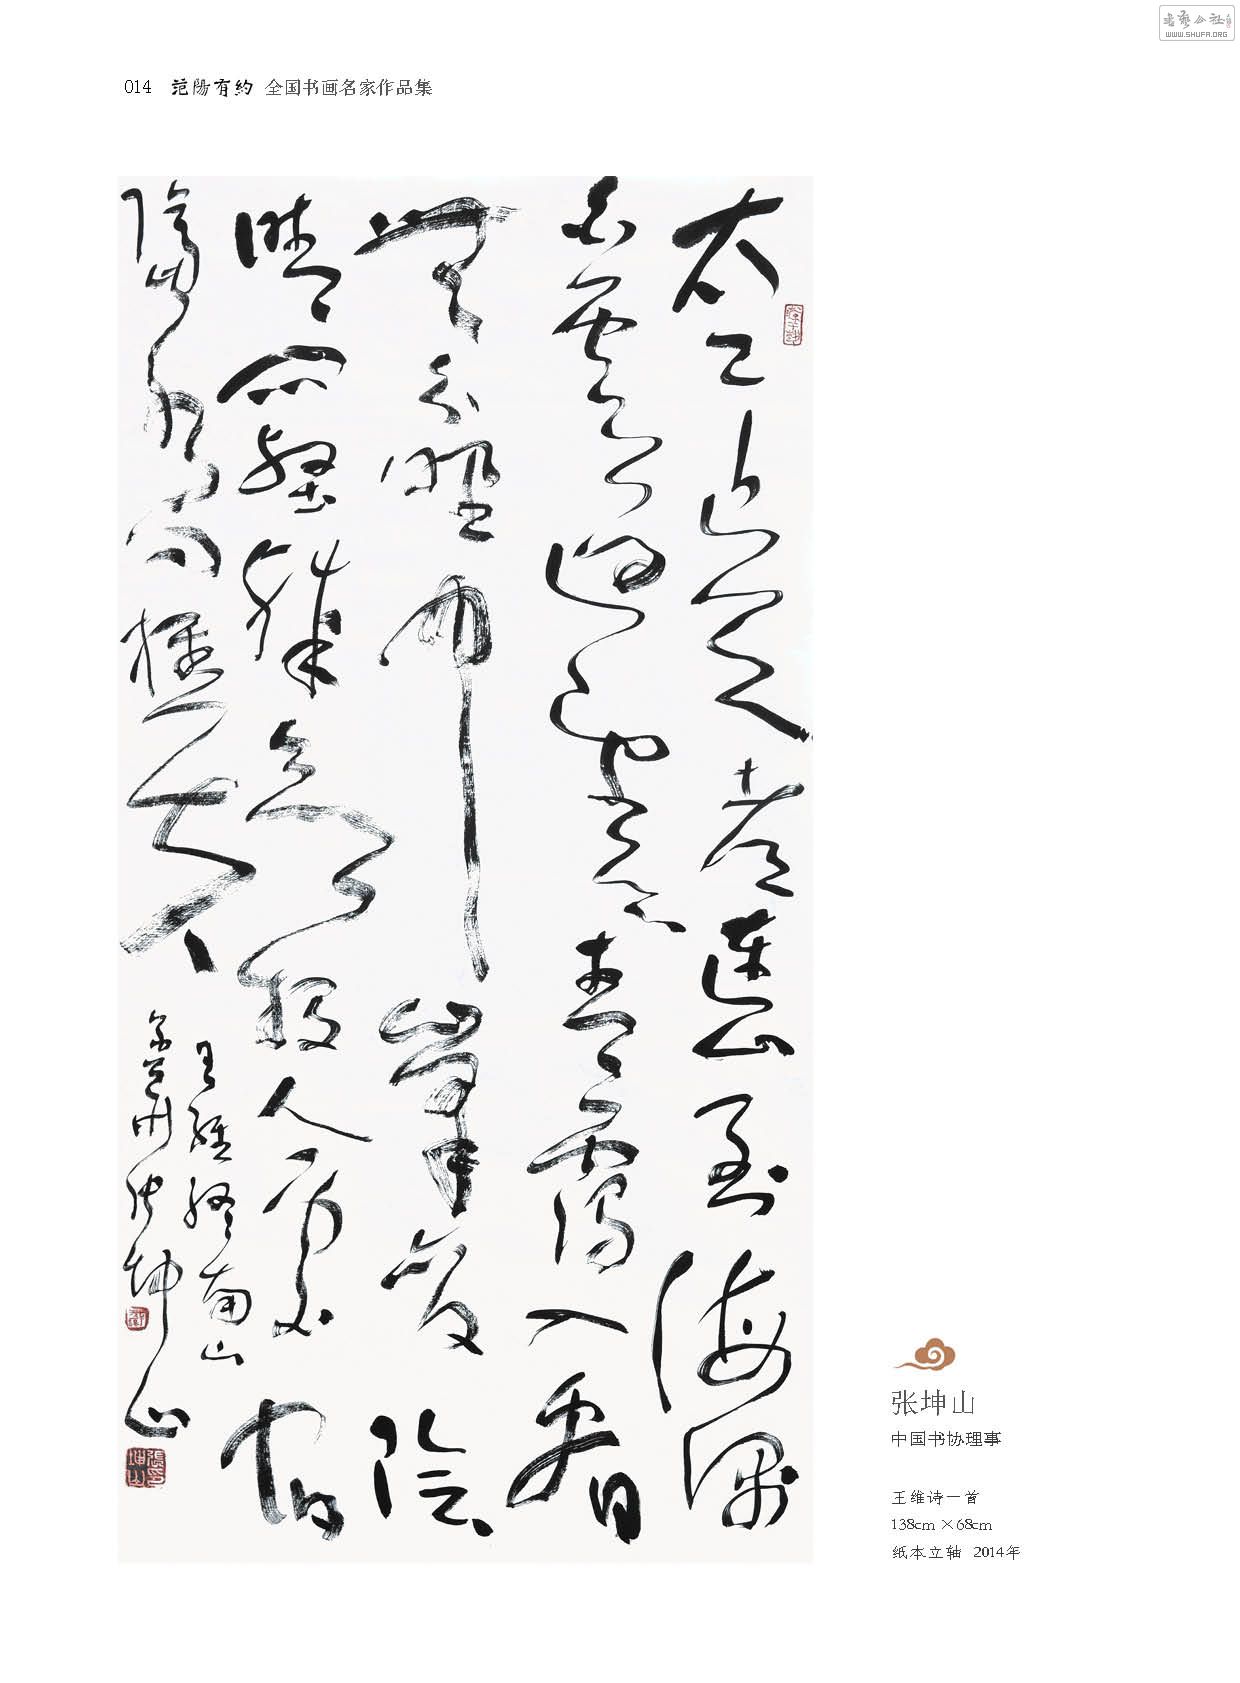 014 范陽有約 全国书画名家作品集
太乙近天都連山到海隅
白雲迴望合青靄入看
無分野中峰變陰
晴眾壑殊欲投人處宿
隔水問樵夫
王維終南山
張坤山
张坤山
中国书协理事
王维诗一首
138cm×68cm
纸本立轴 2014年
书艺公社
WWW.SHUFA.ORG